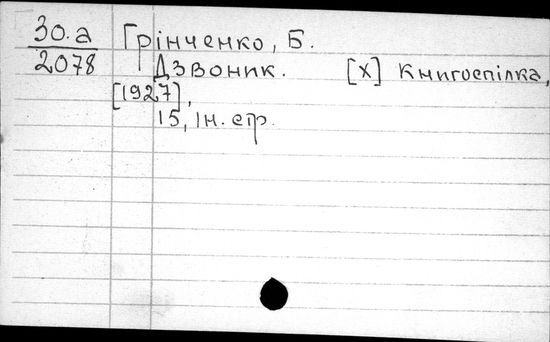 30.а
2078
Грінченко, Б.
Дзвоник. [Х] Книгоспілка,
[1927],
15, ін. стр.